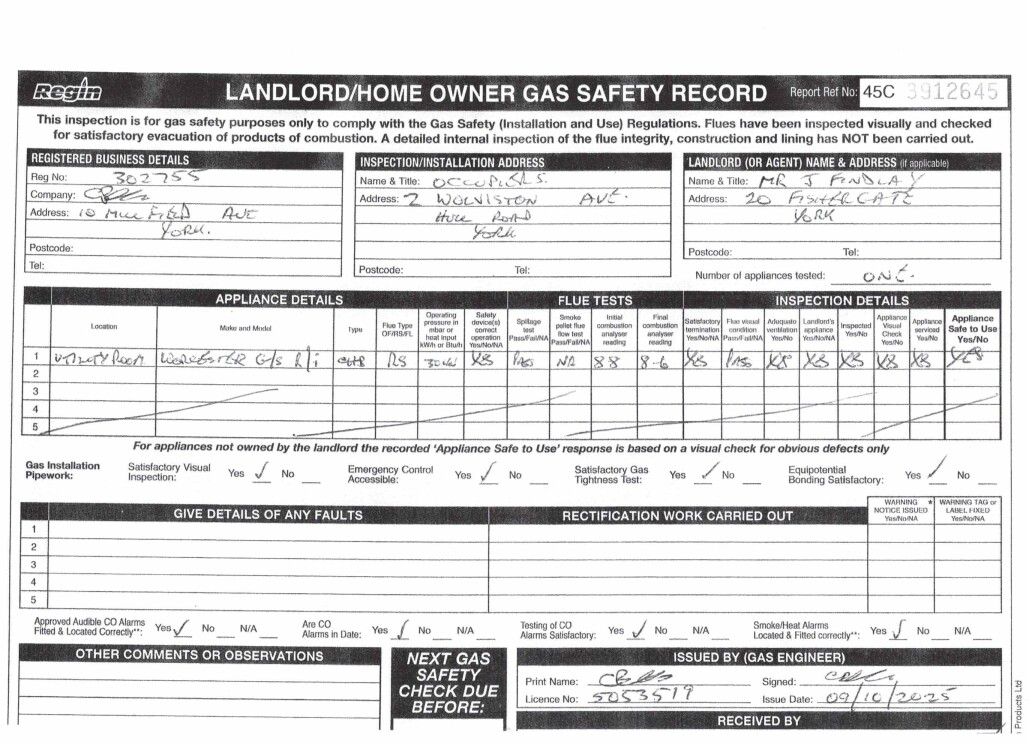 Regin LANDLORD/HOME OWNER GAS SAFETY RECORD Report Ref No: 45C 3912645
This inspection is for gas safety purposes only to comply with the Gas Safety (Installation and Use) Regulations. Flues have been inspected visually and checked
for satisfactory evacuation of products of combustion. A detailed internal inspection of the flue integrity, construction and lining has NOT been carried out.
REGISTERED BUSINESS DETAILS
Reg No: 302755
Company:
Address: 10 MILL FIELD AVE
YORK.
Postcode:
Tel:
INSPECTION/INSTALLATION ADDRESS
Name & Title: OCCUPIERS.
Address: 2 WOLVISTON AVE.
HULL ROAD
YORK
Postcode: Tel:
LANDLORD (OR AGENT) NAME & ADDRESS (if applicable)
Name & Title: MR J FINDLAY
Address: 20 FISHERGATE
YORK
Postcode: Tel:
Number of appliances tested: ONE.
APPLIANCE DETAILS FLUE TESTS INSPECTION DETAILS
Location Make and Model Type Flue Type OF/RS/FL Operating pressure in mbar or heat input kW/h or Btu/h Safety device(s) correct operation Yes/No/NA Spillage test Pass/Fail/NA Smoke pellet flue flow test Pass/Fail/NA Initial combustion analyser reading Final combustion analyser reading Satisfactory termination Yes/No/NA Flue visual condition Pass/Fail/NA Adequate ventilation Yes/No Landlord's appliance Yes/No/NA Inspected Yes/No Appliance Visual Check Yes/No Appliance serviced Yes/No Appliance Safe to Use Yes/No
1 UTILITY ROOM WORCESTER RS YES PASS NA 88 8-6 YES PASS YES YES YES YES YES YES
2
3
4
5
For appliances not owned by the landlord the recorded 'Appliance Safe to Use' response is based on a visual check for obvious defects only
Gas Installation Pipework: Satisfactory Visual Inspection: Yes ✓ No Emergency Control Accessible: Yes ✓ No Satisfactory Gas Tightness Test: Yes ✓ No Equipotential Bonding Satisfactory: Yes ✓ No
GIVE DETAILS OF ANY FAULTS RECTIFICATION WORK CARRIED OUT WARNING * NOTICE ISSUED Yes/No/NA WARNING TAG or LABEL FIXED Yes/No/NA
1
2
3
4
5
Approved Audible CO Alarms Fitted & Located Correctly**: Yes ✓ No N/A Are CO Alarms in Date: Yes ✓ No N/A Testing of CO Alarms Satisfactory: Yes ✓ No N/A Smoke/Heat Alarms Located & Fitted correctly**: Yes ✓ No N/A
OTHER COMMENTS OR OBSERVATIONS
NEXT GAS
SAFETY
CHECK DUE
BEFORE:
ISSUED BY (GAS ENGINEER)
Print Name: Signed:
Licence No: 5053519 Issue Date: 09/10/2025
RECEIVED BY
Products Ltd